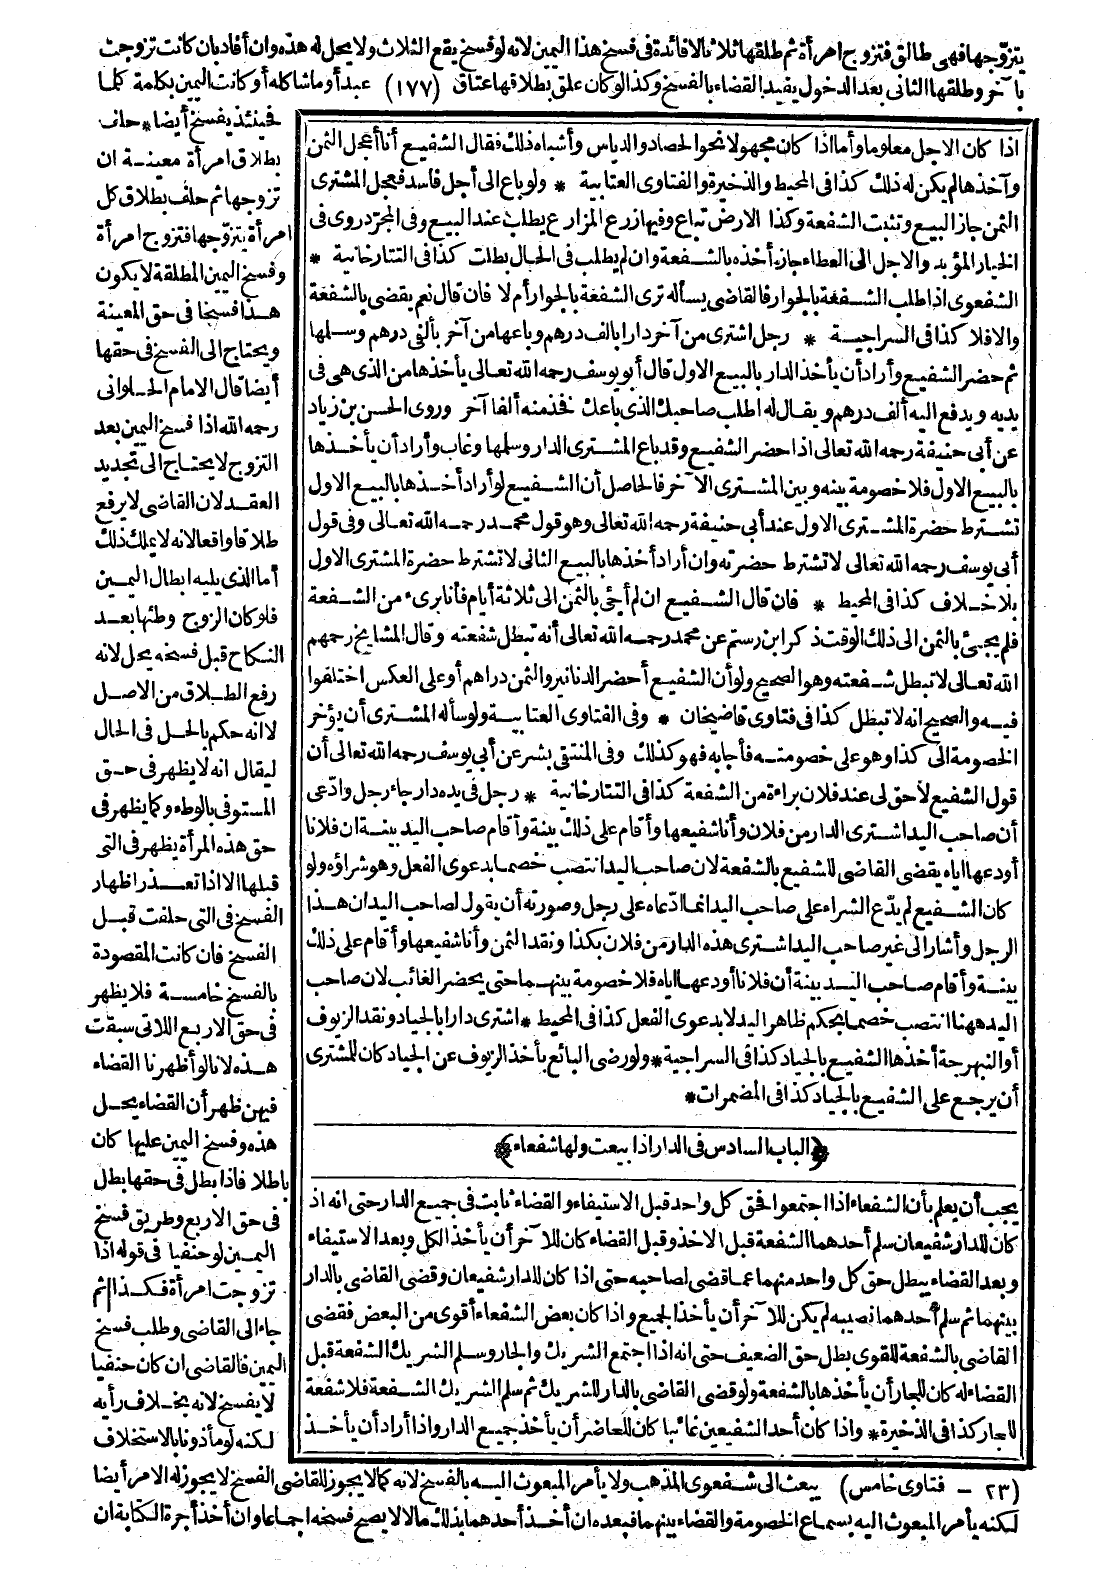 يتزوجها فهي طالق فتزوج امرأة ثم طلقها ثلاثا لا فائدة في فسخ هذا اليمين لانه لو فسخ يقع الثلاث ولا يحل له هذه وان أفاد بان كانت تزوجت
بآخر وطلقها الثاني بعد الدخول يفيد القضاء بالفسخ وكذا لو كان علق بطلاقها عتاق (١٧٧) عبد أو ما شاكله أو كانت اليمين بكلمة كلما
فحينئذ يفسخ أيضا * حلف
بطلاق امرأة معينة ان
تزوجها ثم حلف بطلاق كل
امرأة يتزوجها فتزوج امرأة
وفسخ اليمين المطلقة لا يكون
هذا فسخا في حق المعينة
ويحتاج الى الفسخ في حقها
أيضا قال الامام الحلواني
رحمه الله اذا فسخ اليمين بعد
التزوج لا يحتاج الى تجديد
العقد لان القاضي لا يرفع
طلاقا واقعا لانه لا يملك ذلك
أما الذي يليه ابطال اليمين
فلو كان الزوج وطئها بعد
النكاح قبل فسخه يحل لانه
رفع الطلاق من الاصل
لا انه حكم بالحل في الحال
ليقال انه لا يظهر في حق
المستوفى بالوطء وكما يظهر في
حق هذه المرأة يظهر في التي
قبلها الا اذا تعذر اظهار
الفسخ في التي حلفت قبل
الفسخ فان كانت المقصودة
بالفسخ خامسة فلا يظهر
في حق الاربع اللاتي سبقت
هذه لانا لو أظهرنا القضاء
فيهن ظهر أن القضاء يحل
هذه وفسخ اليمين عليها كان
باطلا فاذا بطل في حقها بطل
في حق الاربع وطريق فسخ
اليمين لو حنفيا في قوله اذا
تزوجت امرأة فكذا ثم
جاء الى القاضي وطلب فسخ
اليمين فالقاضي ان كان حنفيا
لا يفسخ لانه بخلاف رأيه
لكنه لو مأذونا بالاستخلاف
اذا كان الاجل معلوما وأما اذا كان مجهولا نحو الحصاد والدياس وأشباه ذلك فقال الشفيع أنا أعجل الثمن
وآخذها لم يكن له ذلك كذا في المحيط والذخيرة والفتاوى العتابية * ولو باع الى أجل فاسد فعجل المشترى
الثمن جاز البيع وتثبت الشفعة وكذا الارض تباع وفيها زرع المزارع يطلب عند البيع وفي المجرد روى في
الخيار المؤبد والاجل الى العطاء جاز أخذه بالشفعة وان لم يطلب في الحال بطلت كذا في التتارخانية *
الشفعوى اذا طلب الشفعة بالجوار فالقاضي يسأله ترى الشفعة بالجوار أم لا فان قال نعم يقضى بالشفعة
والا فلا كذا في السراجية * رجل اشترى من آخر دارا بالف درهم وباعها من آخر بألفي درهم وسلمها
ثم حضر الشفيع وأراد أن يأخذ الدار بالبيع الاول قال أبو يوسف رحمه الله تعالى يأخذها من الذي هي في
يديه ويدفع اليه ألف درهم ويقال له اطلب صاحبك الذي باعك فخذ منه ألفا آخر وروى الحسن بن زياد
عن أبي حنيفة رحمه الله تعالى اذا حضر الشفيع وقد باع المشترى الدار وسلمها وغاب وأراد أن يأخذها
بالبيع الاول فلا خصومة بينه وبين المشترى الآخر فالحاصل أن الشفيع لو أراد أخذها بالبيع الاول
تشترط حضرة المشترى الاول عند أبي حنيفة رحمه الله تعالى وهو قول محمد رحمه الله تعالى وفي قول
أبي يوسف رحمه الله تعالى لا تشترط حضرته وان أراد أخذها بالبيع الثاني لا تشترط حضرة المشترى الاول
بلا خلاف كذا في المحيط * فان قال الشفيع ان لم أجئ بالثمن الى ثلاثة أيام فأنا برىء من الشفعة
فلم يجئ بالثمن الى ذلك الوقت ذكر ابن رستم عن محمد رحمه الله تعالى أنه تبطل شفعته وقال المشايخ رحمهم
الله تعالى لا تبطل شفعته وهو الصحيح ولو أن الشفيع أحضر الدنانير والثمن دراهم أو على العكس اختلفوا
فيه والصحيح انه لا تبطل كذا في فتاوى قاضيخان * وفي الفتاوى العتابية ولو سأله المشترى أن يؤخر
الخصومة الى كذا وهو على خصومته فأجابه فهو كذلك وفي المنتقى بشر عن أبي يوسف رحمه الله تعالى أن
قول الشفيع لا حق لي عند فلان براءة من الشفعة كذا في التتارخانية * رجل في يده دار جاء رجل وادعى
أن صاحب اليد اشترى الدار من فلان وأنا شفيعها وأقام على ذلك بينة وأقام صاحب اليد بينة ان فلانا
أودعها اياه يقضى القاضي للشفيع بالشفعة لان صاحب اليد انتصب خصما بدعوى الفعل وهو شراؤه ولو
كان الشفيع لم يدع الشراء على صاحب اليد انما ادعاه على رجل وصورته أن يقول لصاحب اليد ان هذا
الرجل وأشار الى غير صاحب اليد اشترى هذه الدار من فلان بكذا ونقد الثمن وأنا شفيعها وأقام على ذلك
بينة وأقام صاحب اليد بينة أن فلانا أودعها اياه فلا خصومة بينهما حتى يحضر الغائب لان صاحب
اليد ههنا انتصب خصما بحكم ظاهر اليد لا بدعوى الفعل كذا في المحيط * اشترى دارا بالجياد ونقد الزيوف
أو النبهرجة أخذها الشفيع بالجياد كذا في السراجية * ولو رضى البائع بأخذ الزيوف عن الجياد كان للمشترى
أن يرجع على الشفيع بالجياد كذا في المضمرات *
﴿الباب السادس في الدار اذا بيعت ولها شفعاء﴾
يجب أن يعلم بأن الشفعاء اذا اجتمعوا فحق كل واحد قبل الاستيفاء والقضاء ثابت في جميع الدار حتى انه اذا
كان للدار شفيعان سلم أحدهما الشفعة قبل الاخذ وقبل القضاء كان للآخر أن يأخذ الكل وبعد الاستيفاء
وبعد القضاء يبطل حق كل واحد منهما عما قضى لصاحبه حتى اذا كان للدار شفيعان وقضى القاضي بالدار
بينهما ثم سلم أحدهما نصيبه لم يكن للآخر أن يأخذ الجميع واذا كان بعض الشفعاء أقوى من البعض فقضى
القاضي بالشفعة للقوى بطل حق الضعيف حتى انه اذا اجتمع الشريك والجار وسلم الشريك الشفعة قبل
القضاء له كان للجار أن يأخذها بالشفعة ولو قضى القاضي بالدار للشريك ثم سلم الشريك الشفعة فلا شفعة
للجار كذا في الذخيرة * واذا كان أحد الشفيعين غائبا كان للحاضر أن يأخذ جميع الدار واذا أراد أن يأخذ
(٢٣ - فتاوى خامس) يبعث الى شفعوى المذهب ولا يأمر المبعوث اليه بالفسخ لانه كما لا يجوز للقاضي الفسخ لا يجوز له الامر أيضا
لكنه يأمر المبعوث اليه بسماع الخصومة والقضاء بينهما فبعده ان أخذ أحدهما بذلك مالا لا يصح فسخه اجماعا وان أخذ أجرة الكتابة ان